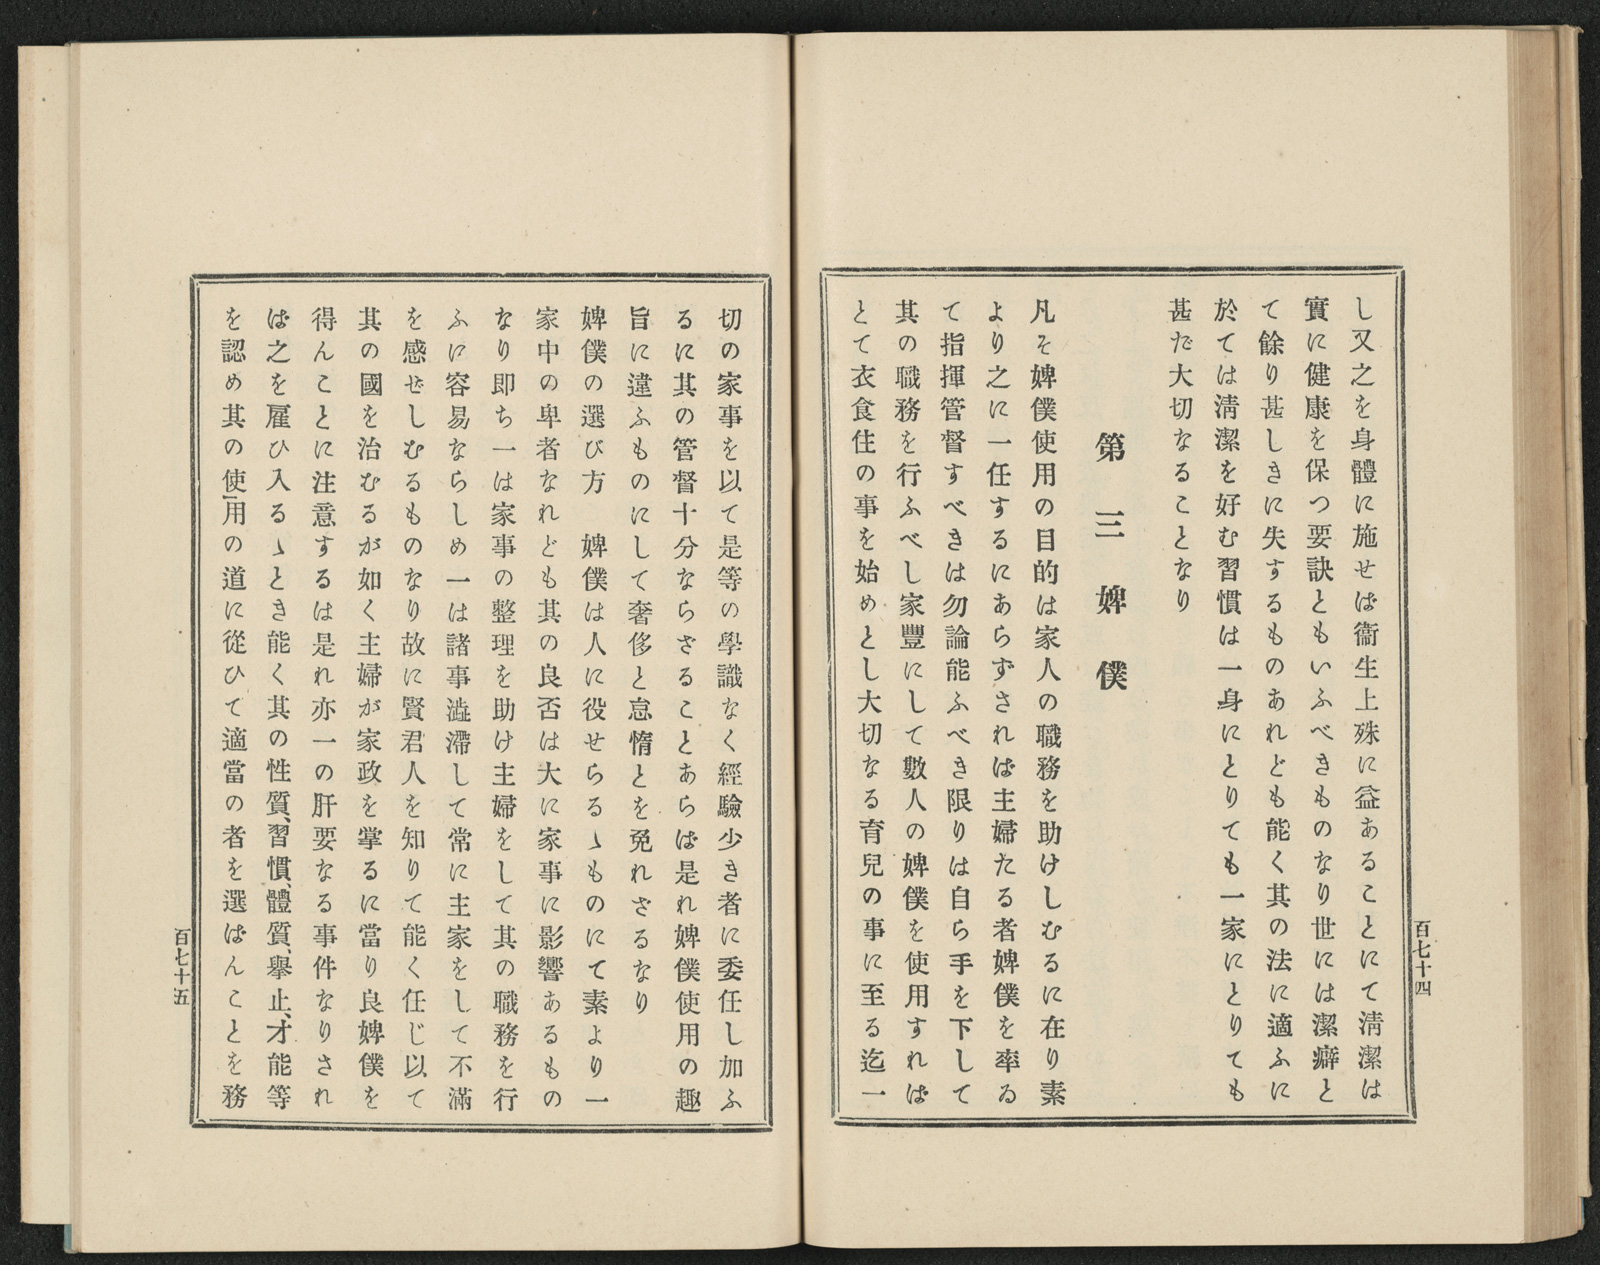 し又之を身體に施せば衞生上殊に益あることにて淸潔は
實に健康を保つ要訣ともいふべきものなり世には潔癖と
て餘り甚しきに失するものあれども能く其の法に適ふに
於ては淸潔を好む習慣は一身にとりても一家にとりても
甚だ大切なることなり
第三 婢僕
凡そ婢僕使用の目的は家人の職務を助けしむるに在り素
より之に一任するにあらずされば主婦たる者婢僕を率ゐ
て指揮管督すべきは勿論能ふべき限りは自ら手を下して
其の職務を行ふべし家豐にして數人の婢僕を使用すれば
とて衣食住の事を始めとし大切なる育兒の事に至る迄一
百七十四
切の家事を以て是等の學識なく經驗少き者に委任し加ふ
るに其の管督十分ならざることあらば是れ婢僕使用の趣
旨に違ふものにして奢侈と怠惰とを免れざるなり
婢僕の選び方 婢僕は人に役せらるゝものにて素より一
家中の卑者なれども其の良否は大に家事に影響あるもの
なり卽ち一は家事の整理を助け主婦をして其の職務を行
ふに容易ならしめ一は諸事澁滯して常に主家をして不滿
を感ぜしむるものなり故に賢君人を知りて能く任じ以て
其の國を治むるが如く主婦が家政を掌るに當り良婢僕を
得んことに注意するは是れ亦一の肝要なる事件なりされ
ば之を雇ひ入るゝとき能く其の性質、習慣、體質、擧止、才能等
を認め其の使用の道に從ひて適當の者を選ばんことを務
百七十五